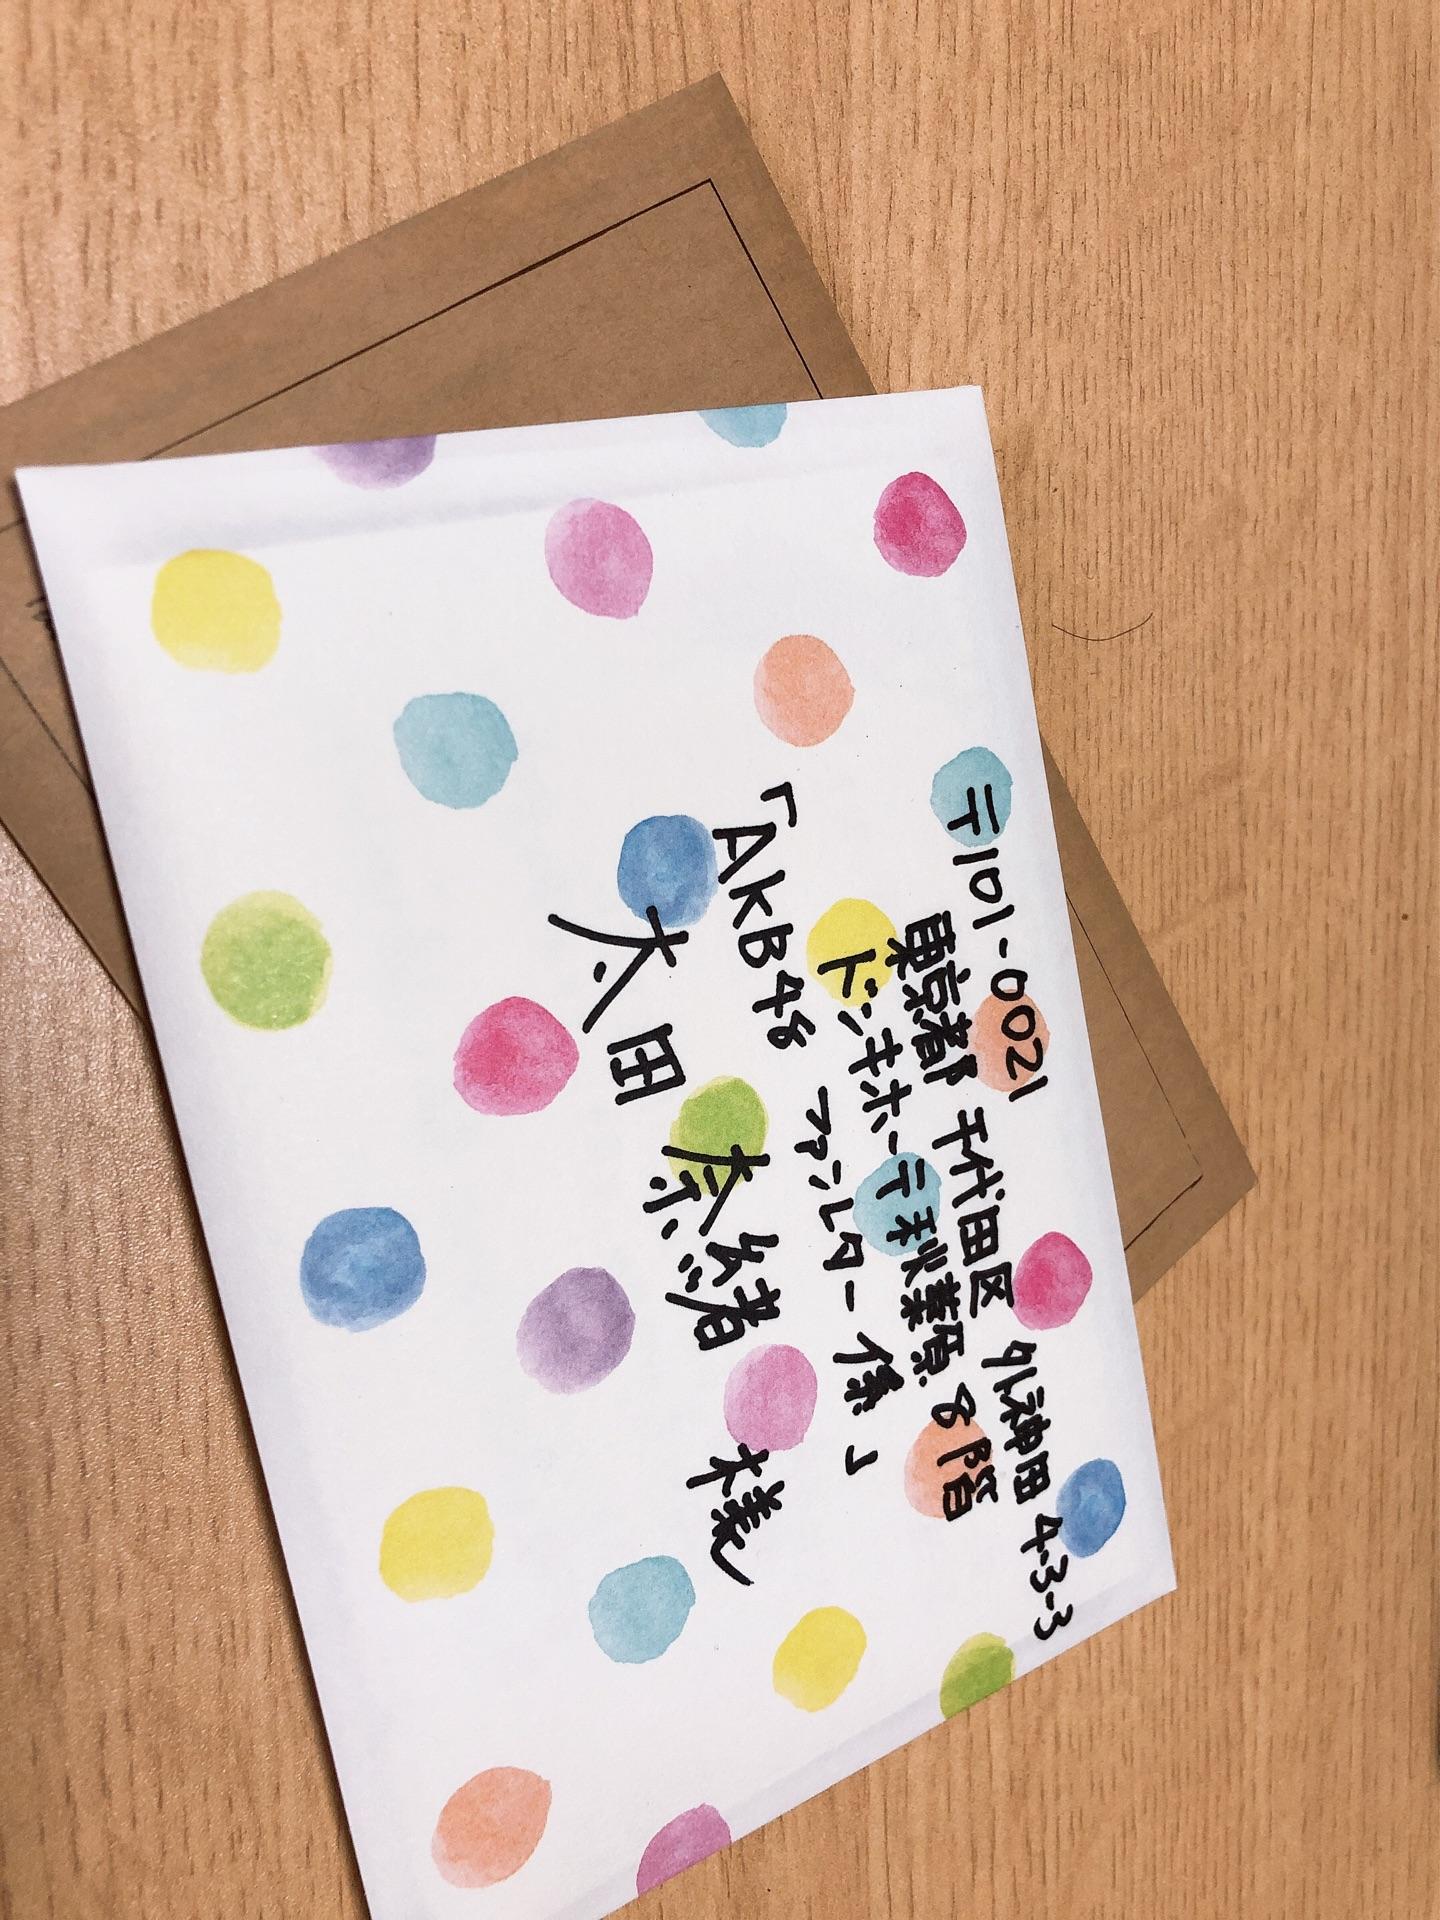 〒101-0021
東京都 千代田区 外神田 4-3-3
ドン・キホーテ秋葉原 8階
「AKB48 ファンレター係」
太田 奈緒 様